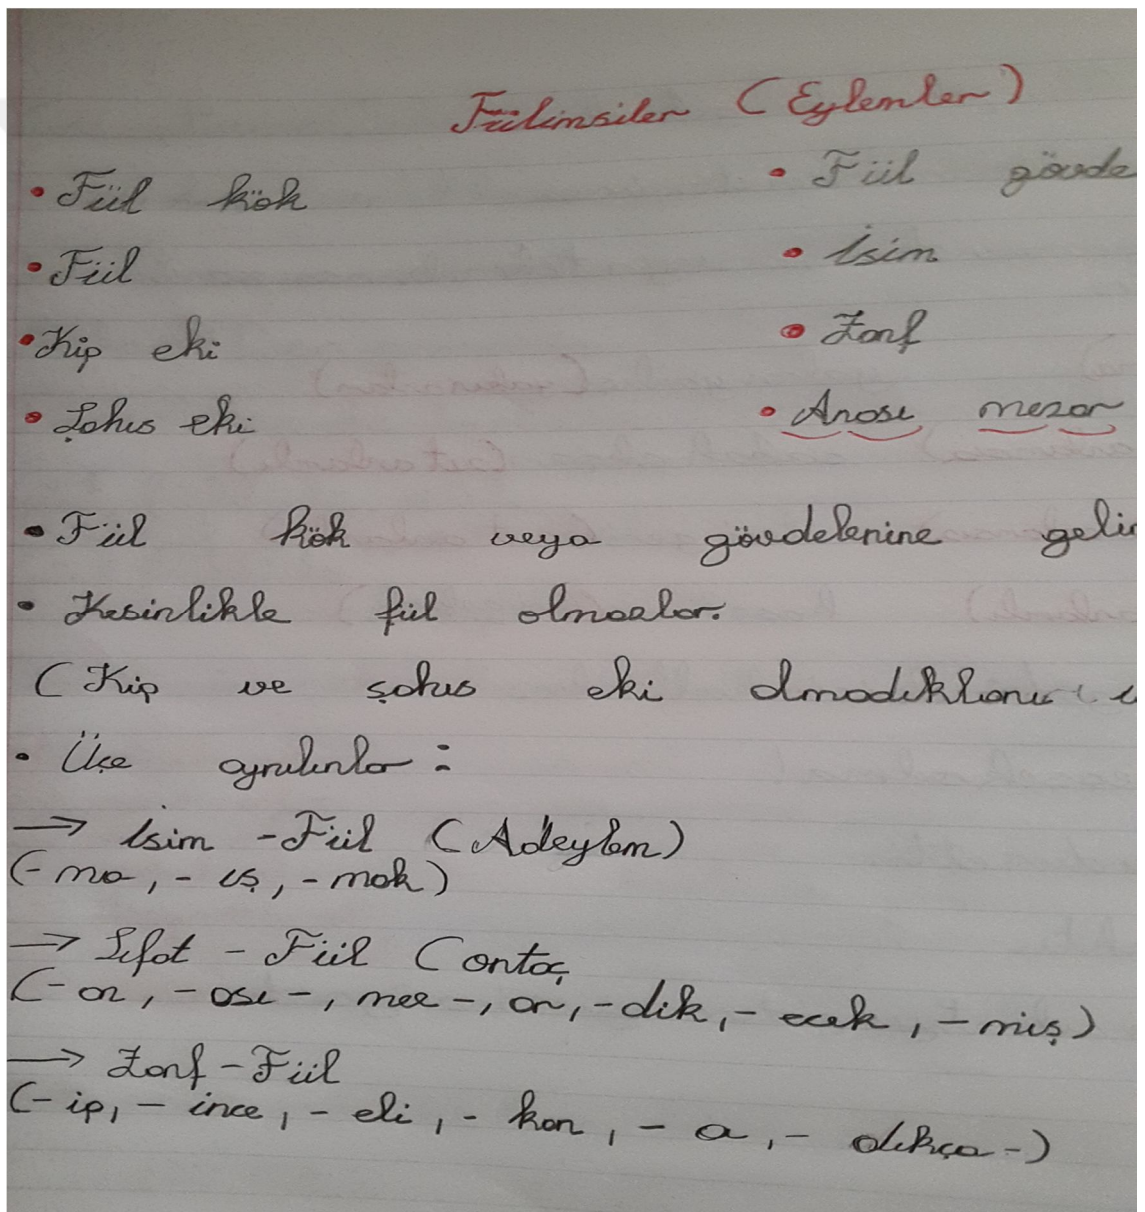 Fiilimsiler (Eylemler)
• Fiil kök • Fiil gövde
• Fiil • İsim
• Kip eki • Zarf
• Şahıs eki • Anası mezar
• Fiil kök veya gövdelerine gelir
• Kesinlikle fiil olmazlar.
(Kip ve şahıs eki almadıklarını
• Üçe ayrılırlar :
→ İsim - Fiil (Adeylem)
(- ma, - ış, - mak)
→ Sıfat - Fiil (ortaç
(- an, - ası -, mez -, ar, - dik, - ecek, - miş)
→ Zarf - Fiil
(- ip, - ince, - eli, - ken, - a, - dıkça -)